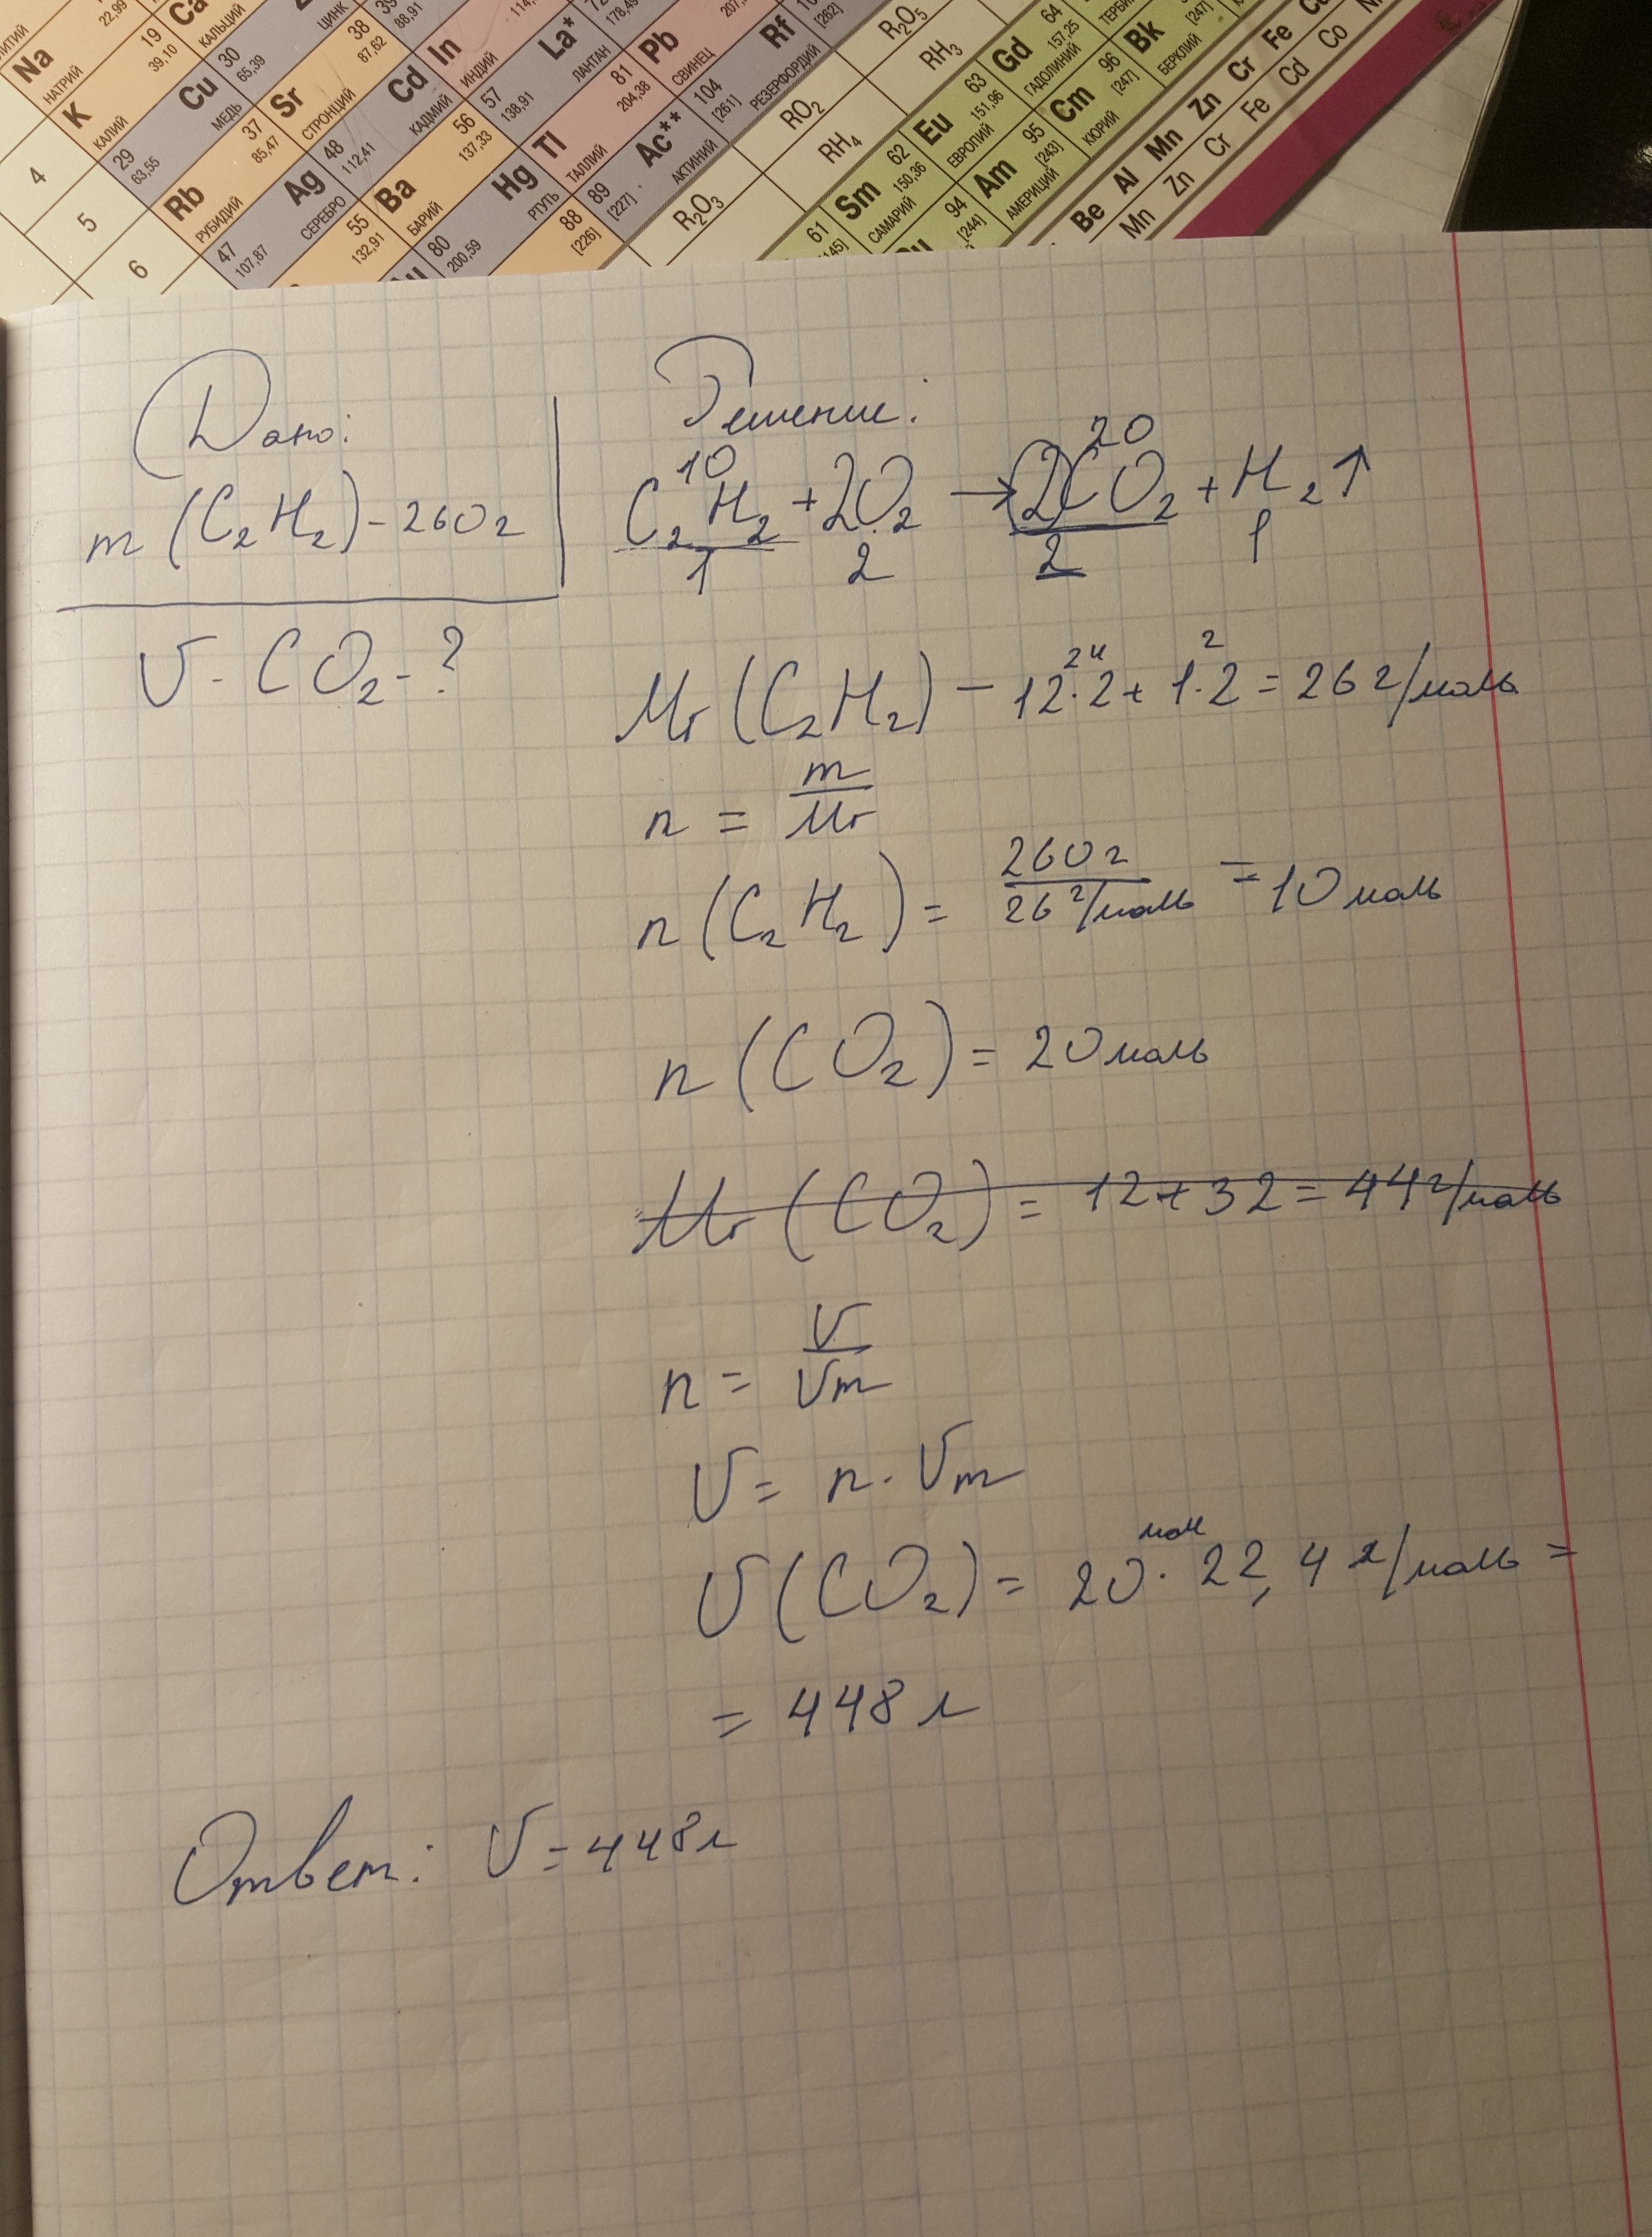 Na
НАТРИЙ
22,99
19
K
39,10
КАЛИЙ
Ca
КАЛЬЦИЙ
4
29
Cu
63,55
МЕДЬ
30
65,39
ЦИНК
5
37
Rb
85,47
РУБИДИЙ
38
Sr
87,62
СТРОНЦИЙ
88,91
47
Ag
107,87
СЕРЕБРО
48
Cd
112,41
КАДМИЙ
In
ИНДИЙ
6
55
132,91
56
Ba
137,33
БАРИЙ
57
La*
138,91
ЛАНТАН
80
Hg
200,59
РТУТЬ
81
Tl
204,38
ТАЛЛИЙ
Pb
СВИНЕЦ
88
[226]
89
Ac**
[227]
АКТИНИЙ
104
Rf
[261]
РЕЗЕРФОРДИЙ
[262]
R₂O₃
RO₂
RH₄
R₂O₅
RH₃
61
62
Sm
150,36
САМАРИЙ
63
Eu
151,96
ЕВРОПИЙ
64
Gd
157,25
ГАДОЛИНИЙ
94
[244]
95
Am
[243]
АМЕРИЦИЙ
96
Cm
[247]
КЮРИЙ
Bk
[247]
БЕРКЛИЙ
Be Al Mn Zn Cr Fe
Mn Zn Cr Fe Cd Co
Дано:
m (C₂H₂) - 260 г
V - CO₂ - ?
Решение:
10 20
C₂H₂ + 2O₂ → 2CO₂ + H₂↑
1 2 2 1
24 2
Mr (C₂H₂) - 12·2 + 1·2 = 26 г/моль
n = m/Mr
n (C₂H₂) = 260 г / 26 г/моль = 10 моль
n (CO₂) = 20 моль
Mr (CO₂) = 12 + 32 = 44 г/моль
n = V/Vm
V = n · Vm
моль
V (CO₂) = 20 · 22,4 л/моль =
= 448 л
Ответ: V = 448 л